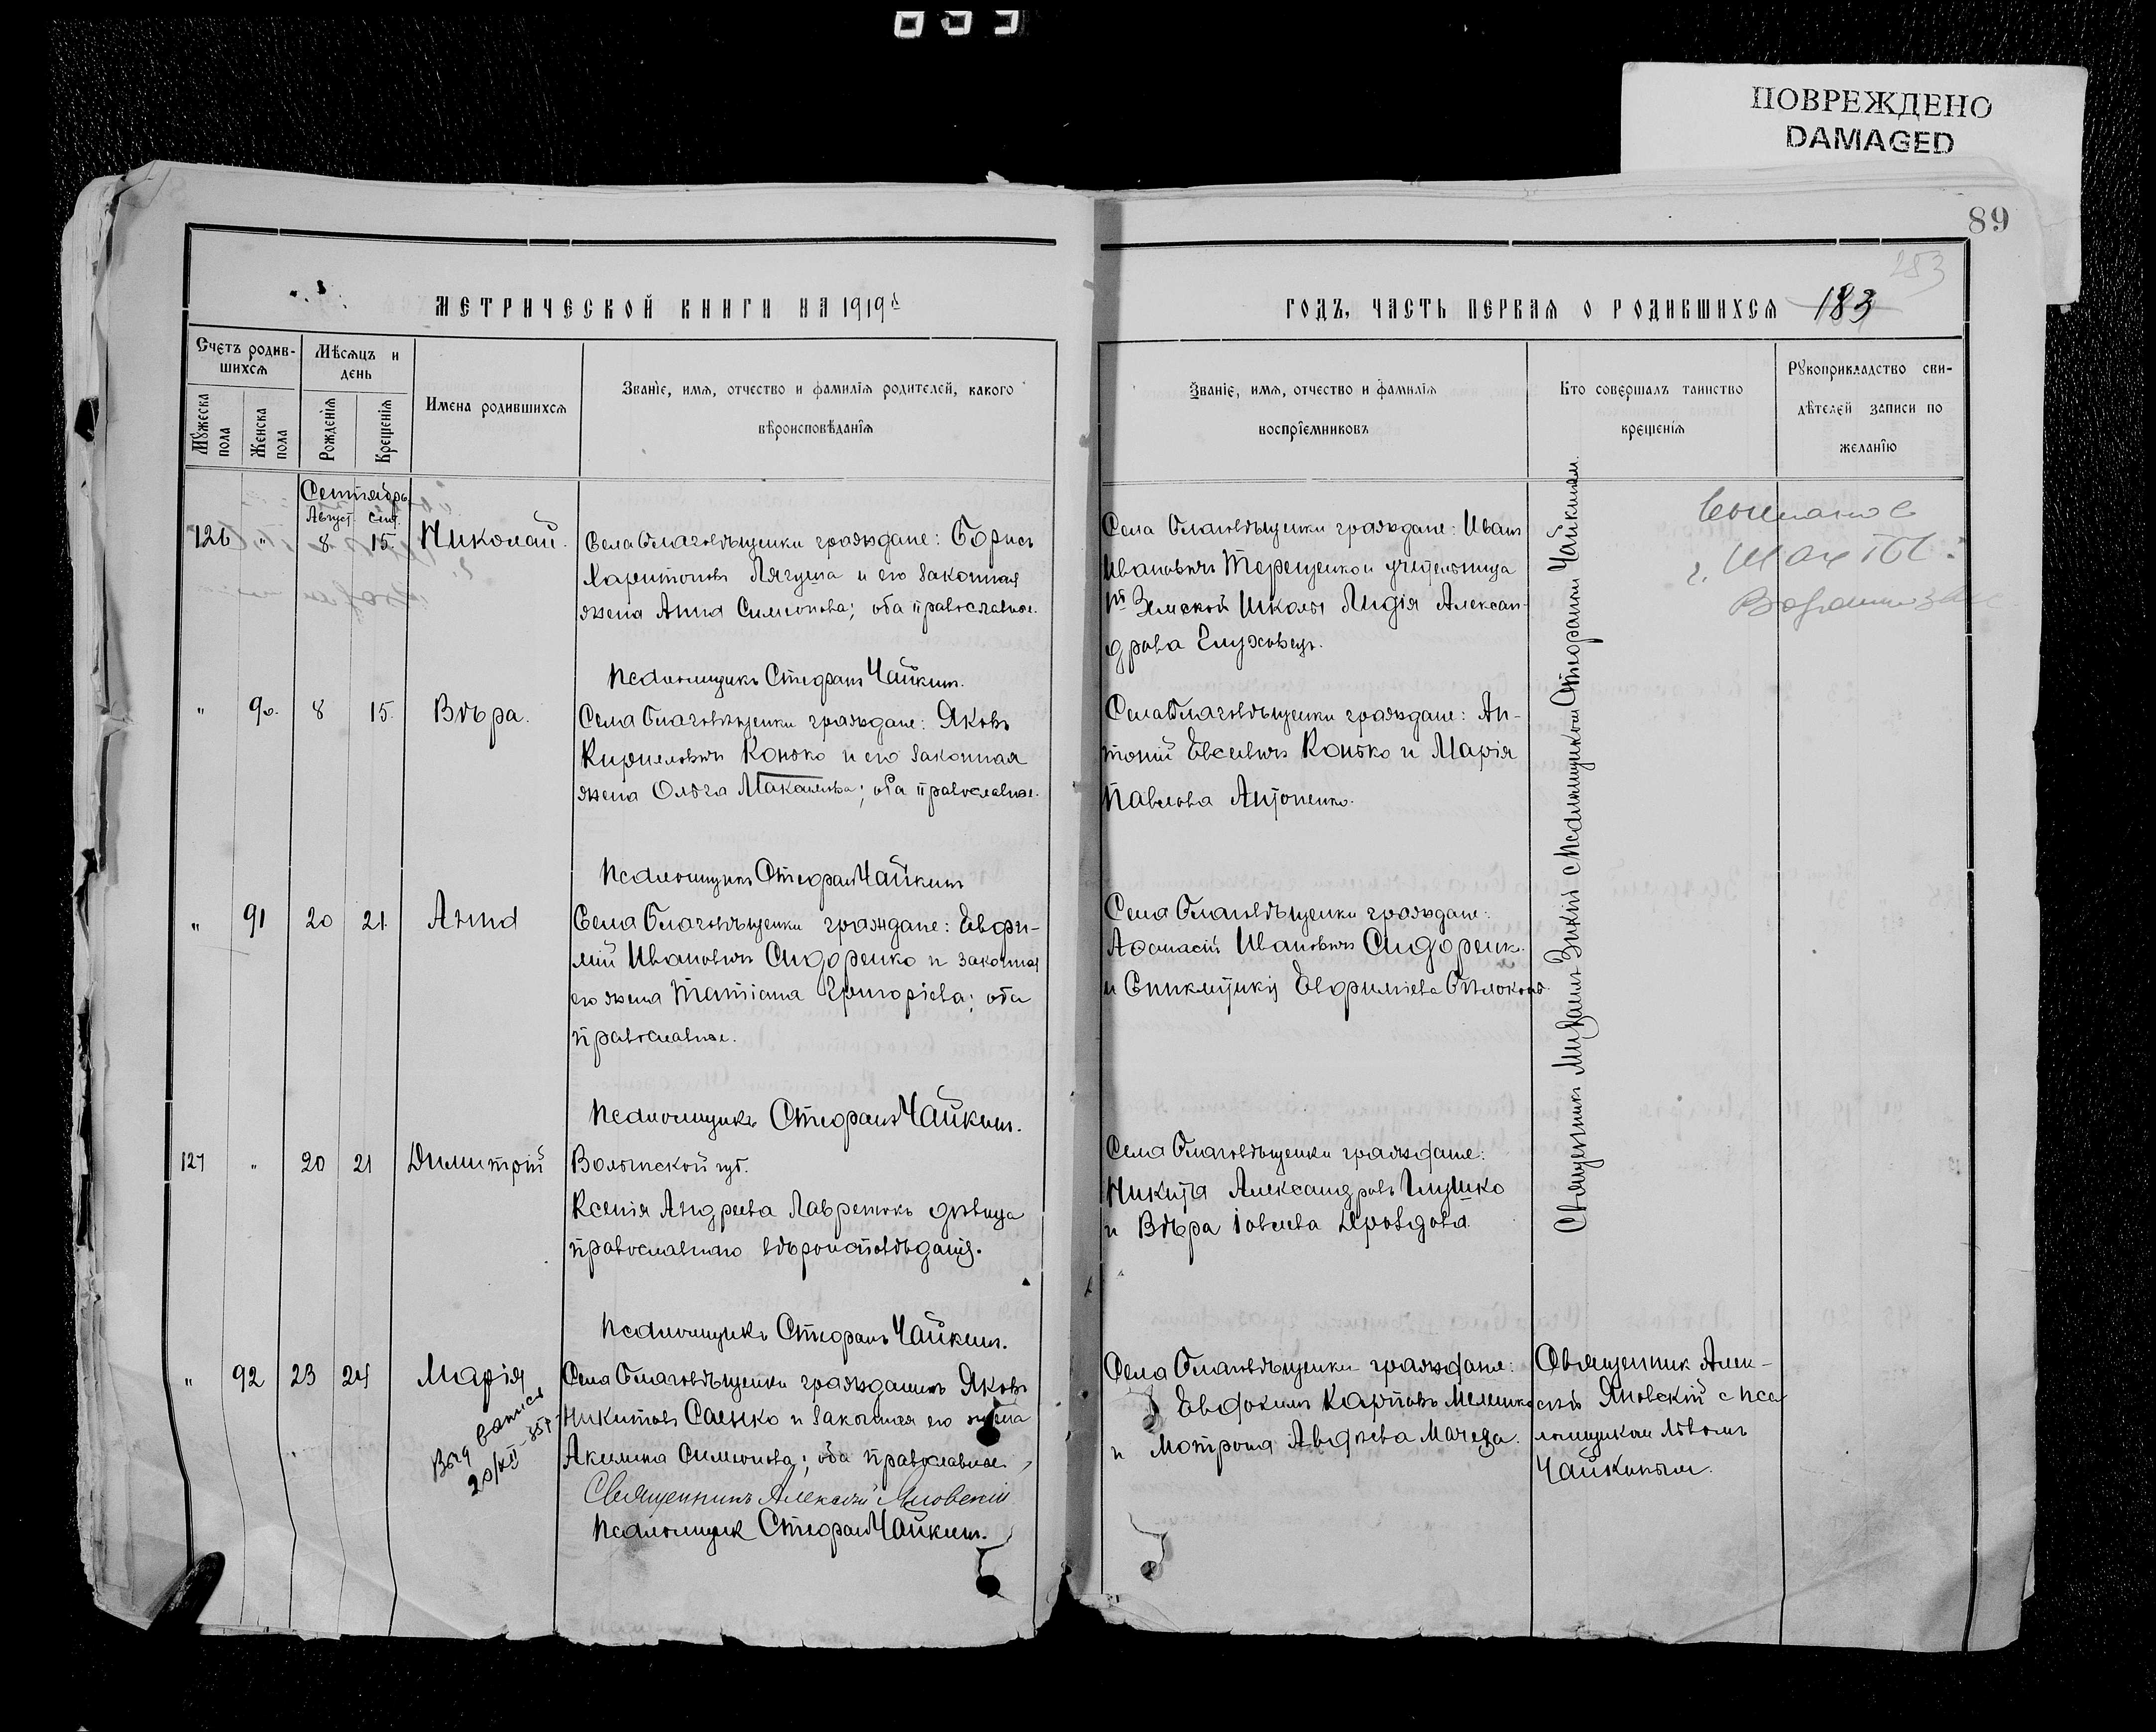 ПОВРЕЖДЕНО
DAMAGED
89
253
МЕТРИЧЕСКОЙ КНИГИ НА 1919й
ГОДЪ, ЧАСТЬ ПЕРВАЯ О РОДИВШИХСЯ 183
Счетъ родив-
шихся
Мужеска
пола
Женска
пола
Мѣсяцъ и
день
Рожденія
Крещенія
Имена родившихся
Званіе, имя, отчество и фамилія родителей, какого
вѣроисповѣданія
Званіе, имя, отчество и фамилія
воспріемниковъ
Кто совершалъ таинство
крещенія
Рукоприкладство сви-
дѣтелей записи по
желанію
Сентябрь
Август. сент.
126 " 8 15. Николай.
Села Благовѣщенки граждане: Борисъ
Харитоновъ Лягуша и его законная
жена Анна Симеонова; оба православные.
Псаломщикъ Стефанъ Чайкинъ.
Села Благовѣщенки граждане: Иванъ
Ивановичъ Терещенко и учительница
Земской Школы Лидія Алексан-
дрова Глуховецъ.
г. Шахты
" 90. 8 15. Вѣра.
Села Благовѣщенки граждане: Яковъ
Кирилловичъ Конько и его законная
жена Ольга; оба православные.
Псаломщикъ Стефанъ Чайкинъ
Села Благовѣщенки граждане: Ан-
тоній Евсевичъ Конько и Марія
Павлова Антоненко.
" 91 20 21. Анна
Села Благовѣщенки граждане: Евфи-
мій Ивановичъ Сидоренко и законная
его жена Татіана Григоріева; оба
православные.
Псаломщикъ Стефанъ Чайкинъ.
Села Благовѣщенки граждане:
Аѳанасій Ивановичъ Сидоренк.
и Евфиміева
127 " 20 21 Димитрій
Волынской губ.
Ксенія Андреева Лавренюкъ дѣвица
православнаго вѣроисповѣданія.
Псаломщикъ Стефанъ Чайкинъ.
Села Благовѣщенки граждане:
Никита Александровъ Глушко
и Вѣра Іовлева Дроздова.
Священникъ Михаилъ Зикій с Псаломщикомъ Стефаномъ Чайкинымъ.
" 92 23 24 Марія
Выд запись
20/XII-35г.
Села Благовѣщенки гражданинъ Яковъ
Никитовъ Саенко и законная его жена
Акилина Симеонова; оба православные
Священникъ Алексій Яновскій
Псаломщик Стефанъ Чайкинъ.
Села Благовѣщенки граждане:
Евфокимъ Карповъ Мелешко
и Мотрона Авдѣева Мачеза.
Священник Алек-
сѣй Яновскій с пса-
ломщиком
Чайкинымъ.